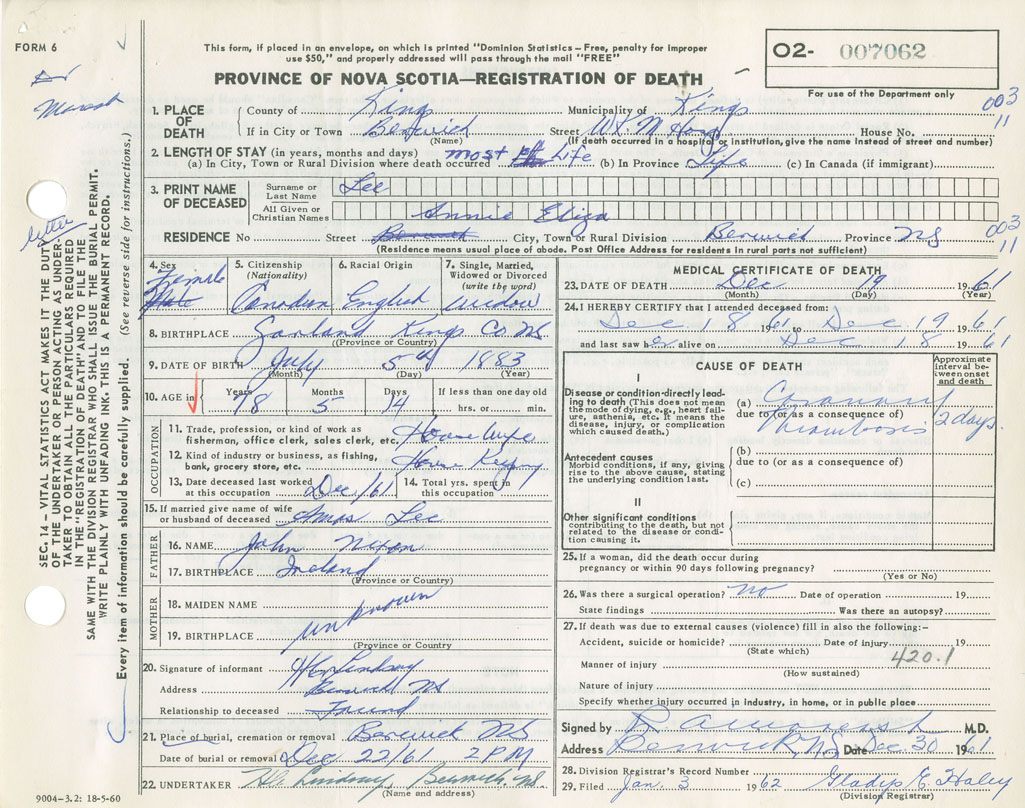 FORM 6
This form, if placed in an envelope, on which is printed "Dominion Statistics—Free, penalty for improper
use $50," and properly addressed will pass through the mail "FREE"
PROVINCE OF NOVA SCOTIA—REGISTRATION OF DEATH
O2- 007062
For use of the Department only
003
11
SEC. 14 – VITAL STATISTICS ACT MAKES IT THE DUTY
OF THE UNDERTAKER OR PERSON ACTING AS UNDER-
TAKER TO OBTAIN ALL THE PARTICULARS REQUIRED
IN THE "REGISTRATION OF DEATH" AND TO FILE THE
SAME WITH THE DIVISION REGISTRAR WHO SHALL ISSUE THE BURIAL PERMIT.
WRITE PLAINLY WITH UNFADING INK. THIS IS A PERMANENT RECORD.
Every item of information should be carefully supplied. (See reverse side for instructions.)
letter
1. PLACE OF DEATH County of Kings Municipality of Kings
If in City or Town Berwick Street W.K.M Hosp House No.
(Name) (If death occurred in a hospital or institution, give the name instead of street and number)
2. LENGTH OF STAY (in years, months and days)
(a) In City, Town or Rural Division where death occurred most of Life (b) In Province Life (c) In Canada (if immigrant)
3. PRINT NAME OF DECEASED
Surname or Last Name Lee
All Given or Christian Names Annie Eliza
RESIDENCE No Street Berwick City, Town or Rural Division Berwick Province NS
003
11
(Residence means usual place of abode. Post Office Address for residents in rural parts not sufficient)
4. Sex Female Male
5. Citizenship (Nationality) Canadian
6. Racial Origin English
7. Single, Married, Widowed or Divorced (write the word) Widow
8. BIRTHPLACE Garland Kings Co NS
(Province or Country)
9. DATE OF BIRTH July 5th 1883
(Month) (Day) (Year)
10. AGE in Years 78 Months 5 Days 14 If less than one day old hrs. or min.
OCCUPATION
11. Trade, profession, or kind of work as fisherman, office clerk, sales clerk, etc. House Wife
12. Kind of industry or business, as fishing, bank, grocery store, etc. House Keeping
13. Date deceased last worked at this occupation Dec/61 14. Total yrs. spent in this occupation
15. If married give name of wife or husband of deceased Amos Lee
FATHER
16. NAME John Nixon
17. BIRTHPLACE Ireland
(Province or Country)
MOTHER
18. MAIDEN NAME unknown
19. BIRTHPLACE
(Province or Country)
20. Signature of informant Lindsay
Address Berwick NS
Relationship to deceased Friend
21. Place of burial, cremation or removal Berwick NS
Date of burial or removal Dec 22/61 2 PM
22. UNDERTAKER Lindsay, Berwick, NS
(Name and address)
9004—3.2: 18-5-60
MEDICAL CERTIFICATE OF DEATH
23. DATE OF DEATH Dec 19 1961
(Month) (Day) (Year)
24. I HEREBY CERTIFY that I attended deceased from:
Dec 18 1961 to Dec 19 1961
and last saw her alive on Dec 18 1961
CAUSE OF DEATH
Approximate interval between onset and death
I
Disease or condition directly leading to death (This does not mean the mode of dying, e.g., heart failure, asthenia, etc. It means the disease, injury, or complication which caused death.)
(a) Coronary
due to (or as a consequence of)
Thrombosis 2 days.
Antecedent causes
Morbid conditions, if any, giving rise to the above cause, stating the underlying condition last.
(b)
due to (or as a consequence of)
(c)
II
Other significant conditions
contributing to the death, but not related to the disease or condition causing it.
25. If a woman, did the death occur during
pregnancy or within 90 days following pregnancy?
(Yes or No)
26. Was there a surgical operation? No Date of operation 19
State findings Was there an autopsy?
27. If death was due to external causes (violence) fill in also the following:-
Accident, suicide or homicide? Date of injury 19
(State which)
420.1
Manner of injury
(How sustained)
Nature of injury
Specify whether injury occurred in industry, in home, or in public place
Signed by M.D.
Address Berwick, NS Date Dec 30 1961
28. Division Registrar's Record Number
29. Filed Jan. 3 1962 Gladys E. Haley
(Division Registrar)